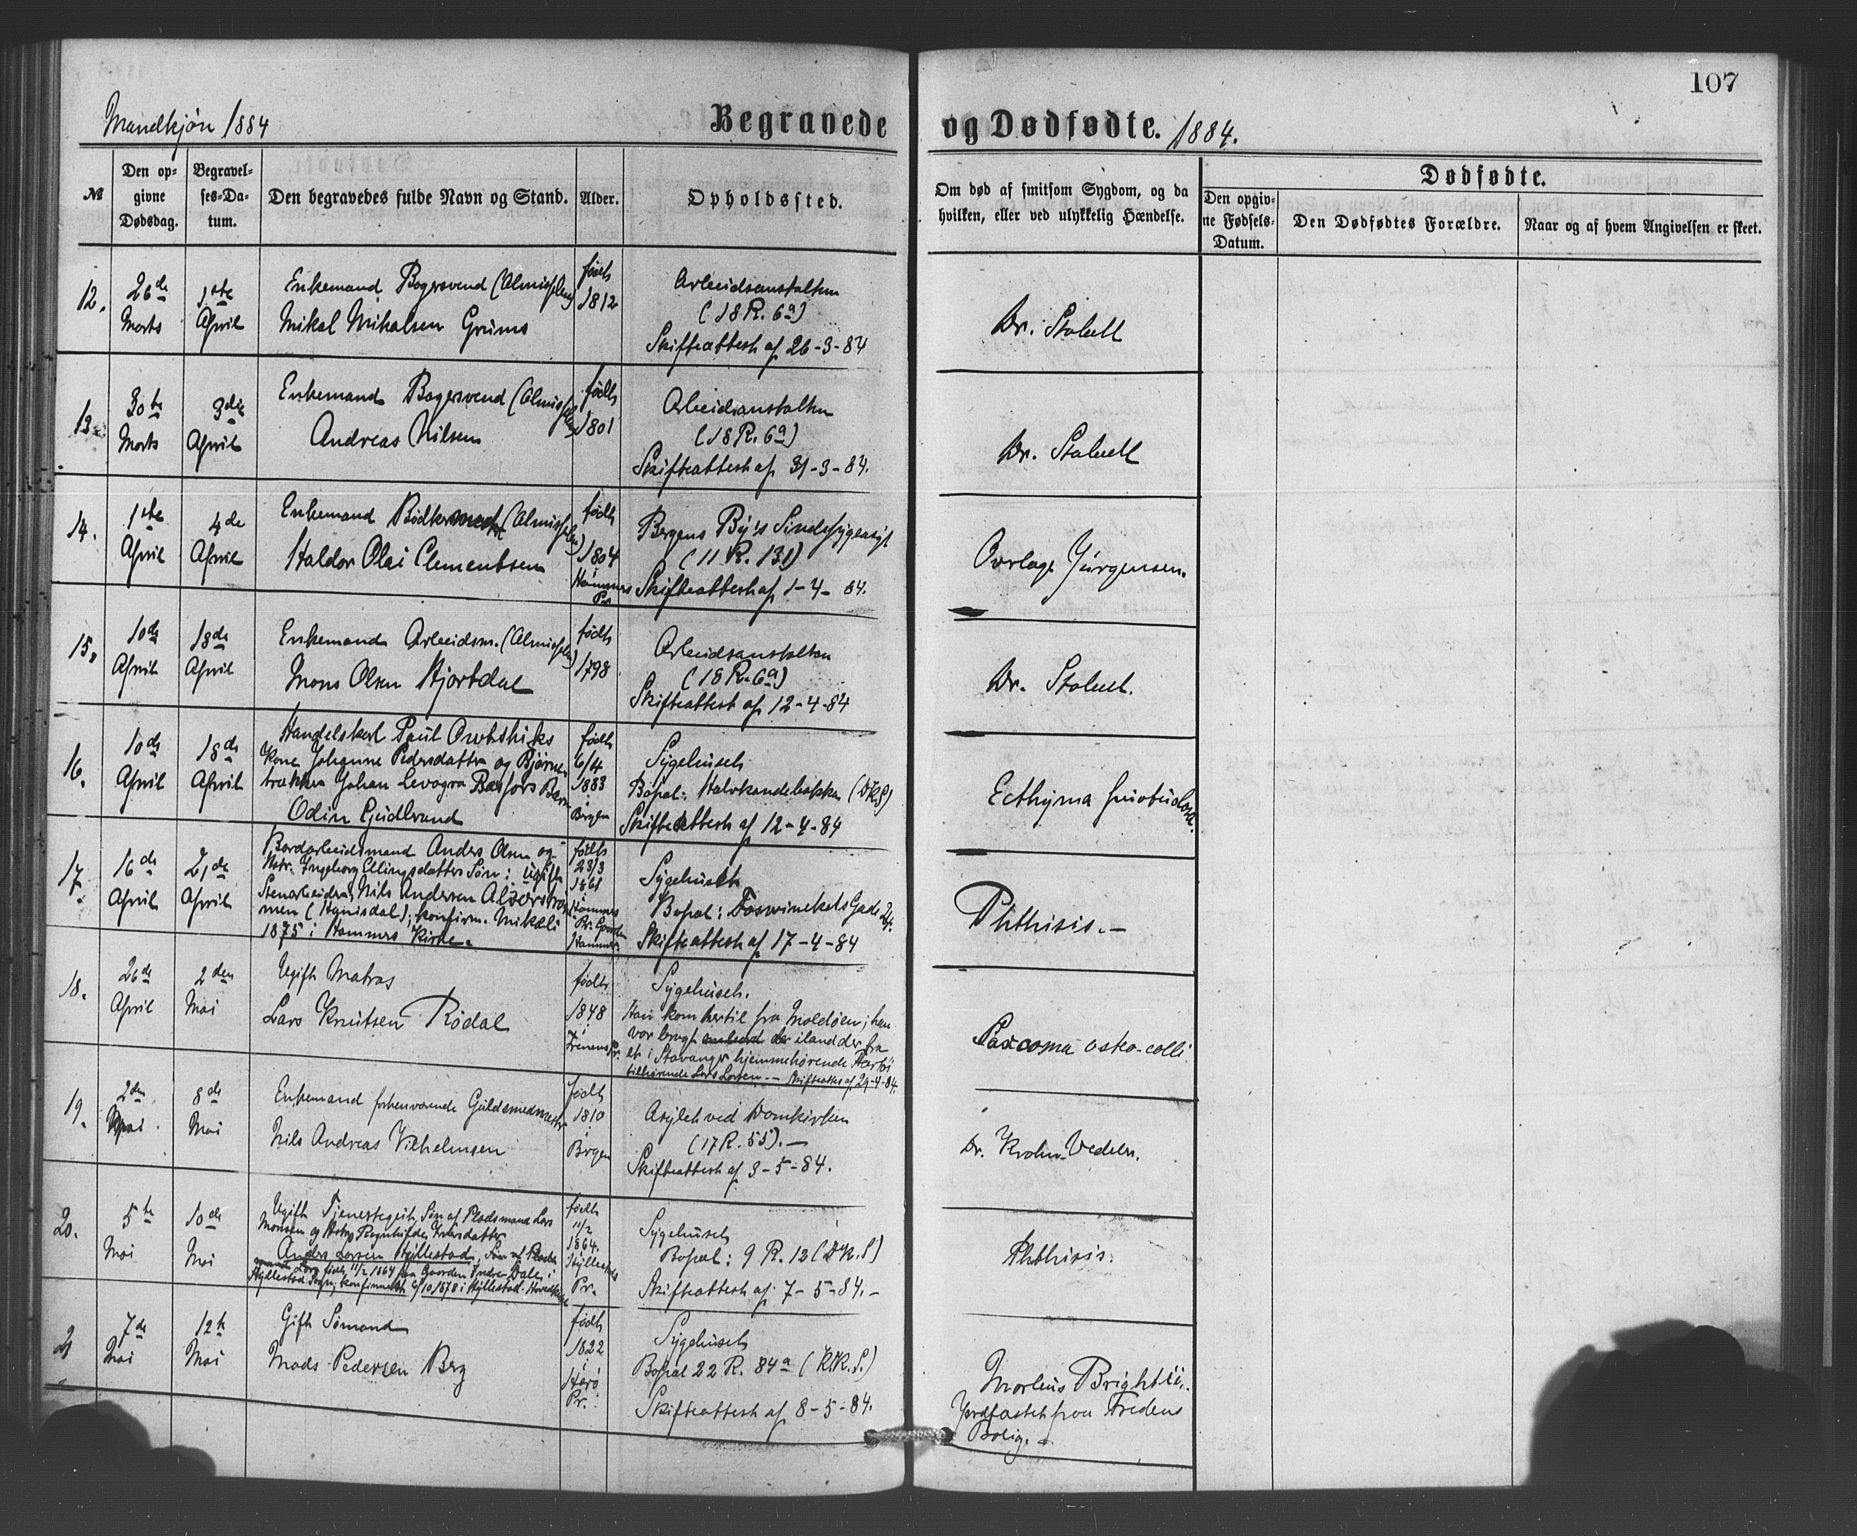 107
Mandkjøn 1884
Begravede og Dødfødte. 1884.
№
Den opgivne Dødsdag.
Begravelses-Datum.
Den begravedes fulde Navn og Stand.
Alder.
Opholdssted.
Om død af smitsom Sygdom, og da
hvilken, eller ved ulykkelig Hændelse.
Dødfødte.
Den opgivne Fødsels-Datum.
Den Dødfødtes Forældre.
Naar og af hvem Angivelsen er skeet.
12.
26de Marts
1ste April
Enkemand Bagersvend (Almisselem)
Mikal Mikalsen Grims
født 1812
Arbeidsanstalten
(18 R. 6a)
Skifteattest af 26-3-84
Dr. Stabell
13.
30te Marts
3die April
Enkemand Bagersvend (Almisselem)
Andreas Nilsen
født 1801
Arbeidsanstalten
(18 R. 6a)
Skifteattest af 31-3-84.
Dr. Stabell
14.
1ste April
4de April
Enkemand Bødkermestr (Almisselem)
Haldor Olai Clementsen
født 1804
Hammers Pr.
Bergens By's Sindssygeasyl
(11 R. 131)
Skifteattest af 1-4-84.
Overlæge Jürgensen.
15.
10de April
18de April
Enkemand Arbeidsm. (Almisselem)
Mons Olsen Hjortdal
født 1798
Arbeidsanstalten
(18 R. 6a)
Skifteattest af 12-4-84
Dr. Stabell.
16.
10de April
18de April
Handelskarl Paul
Kone Johanne Pedersdatter og Bjørne-
trækker Johan Barn
Odin Gudbrand
født 6/4 1883 i Bergen
Sygehuset
Bopæl: Halvkandebakken (DkS)
Skifteattest af 12-4-84
Ecthyma
17.
16de April
21de April
Bordarbeidsmand Anders Olsen og
Hstr. Ingeborg Ellingsdatters Søn: Ugift
Stenarbeider Nils Andersen
(Hanisdal); konfirm. Mikeli
1875 i Hammers Kirke.
født 23/3 1861 i Hammers Pr. Gaarden Hammer
Sygehuset
Bopæl: Gade 24.
Skifteattest af 17-4-84
Phthisis.-
18.
26de April
2den Mai
Ugift Matros
Lars Knutsen Rødal
født 1848 i
Sygehuset.
Han kom hertil fra Moldøen; hen-
var bragt iland der fra
et i Stavanger hjemmehørende Fartøi
tilhørende Lars Larsen.- Skifteattes af 29-4-84.
Sarcoma osteo-colli
19.
2den Mai
8de Mai
Enkemand forhenværende Guldsmedmester
Nils Andreas Vilhelmsen
født 1810 i Bergen
Asylet ved Domkirken
(17 R. 55).-
Skifteattest af 3-5-84.
Dr. Krohn-Vedeler.
20.
5te Mai
10de Mai
Ugift Tjenestegut, Søn af Pladsmand Lars
Monsen og Hstrp Ragnhilde Iversdatter
Anders Larsen Hyllestad, Søn af Plads-
mand Lars født 11/2 1864 paa Gaarden Indre Dale i
Hyllestad Sogn, konfirmeret 6/10 1878 i Hyllestad Hovedkirke
født 11/2 1864. Hyllestads Pr.
Sygehuset
Bopæl: 9 R. 12 (DK.S)
Skifteattest af 7-5-84.-
Phthisis.
21
7de Mai
12te Mai
Gift Sømand
Mads Pedersen Berg
født 1822 i Herø Pr.
Sygehuset
Bopæl 22 R. 84a (K.K.S.)
Skifteattest af 8-5-84.
Morbus Brightii.
Jordfæstet fra Fredens
Bolig.-